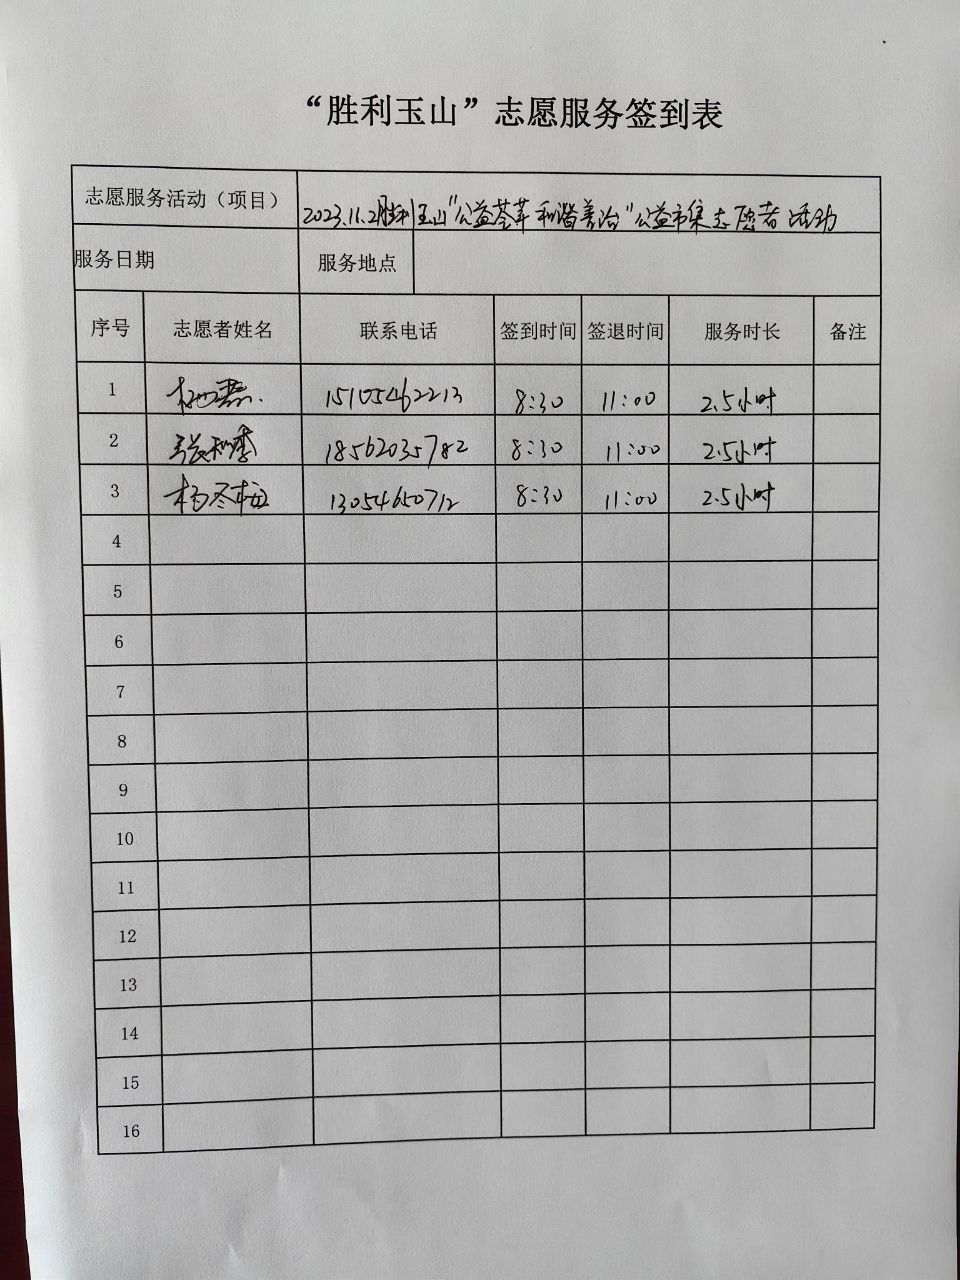 “胜利玉山”志愿服务签到表
志愿服务活动（项目） 2023.11.2胜利玉山“公益荟萃 和谐善治”公益市集志愿者活动
服务日期 服务地点
序号 志愿者姓名 联系电话 签到时间 签退时间 服务时长 备注
1 15105462213 8:30 11:00 2.5小时
2 张和季 18562035782 8:30 11:00 2.5小时
3 杨冬梅 13054650712 8:30 11:00 2.5小时
4
5
6
7
8
9
10
11
12
13
14
15
16